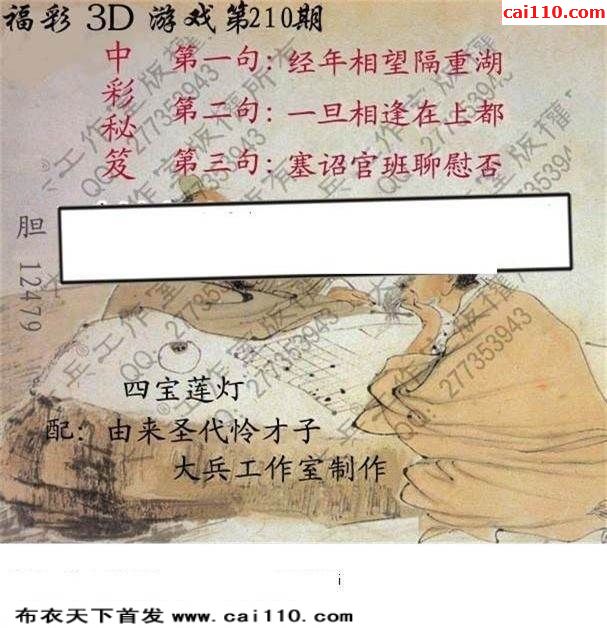 cai110.com
福彩 3D 游戏第210期
中彩秘笈
第一句：经年相望隔重湖
第二句：一旦相逢在上都
第三句：塞诏官班聊慰否
胆 12479
四宝莲灯
配：由来圣代怜才子
大兵工作室制作
布衣天下首发 www.cai110.com